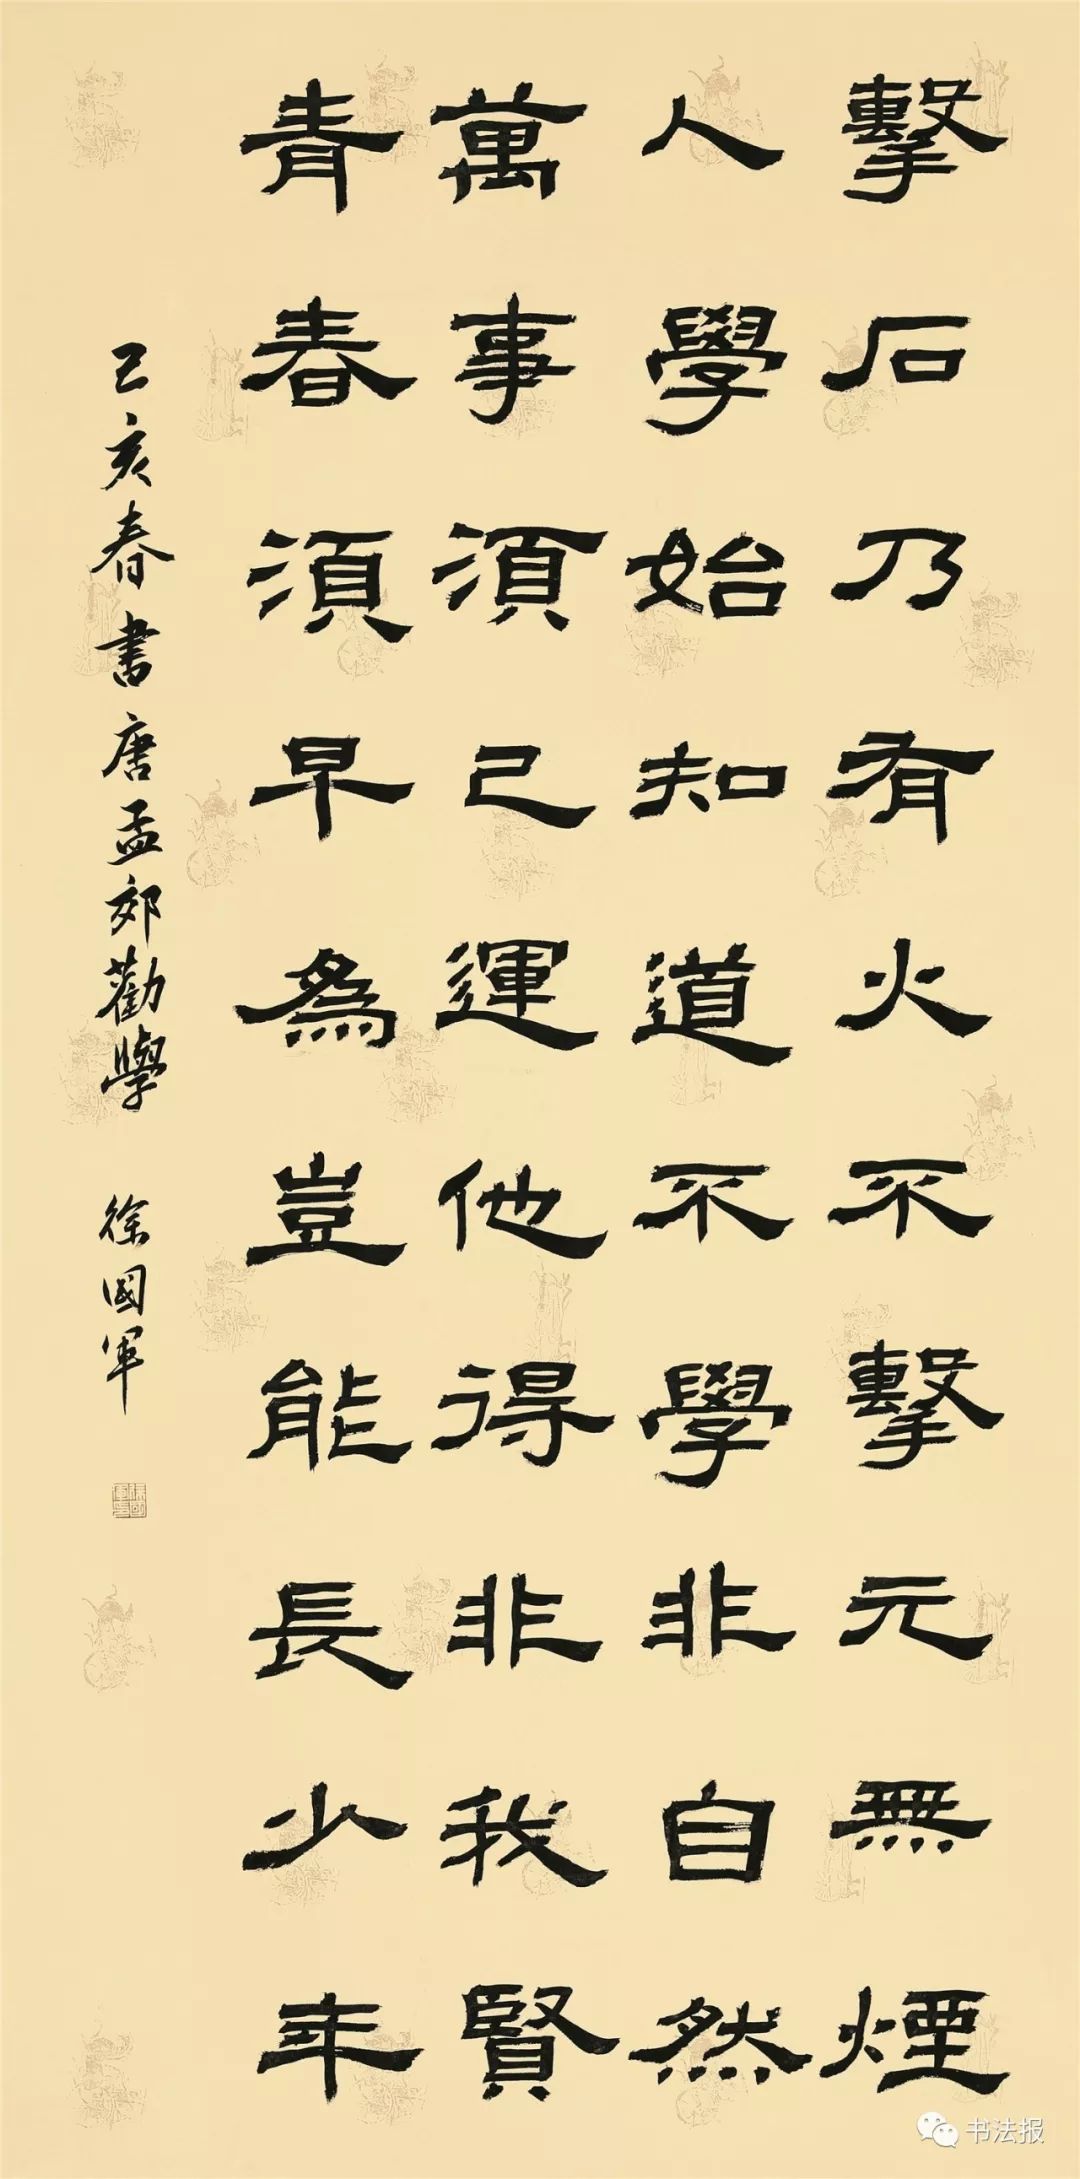 擊石乃有火不擊元無煙
人學始知道不學非自然
萬事須己運他得非我賢
青春須早為豈能長少年
己亥春書唐孟郊勸學 徐國軍
书法报